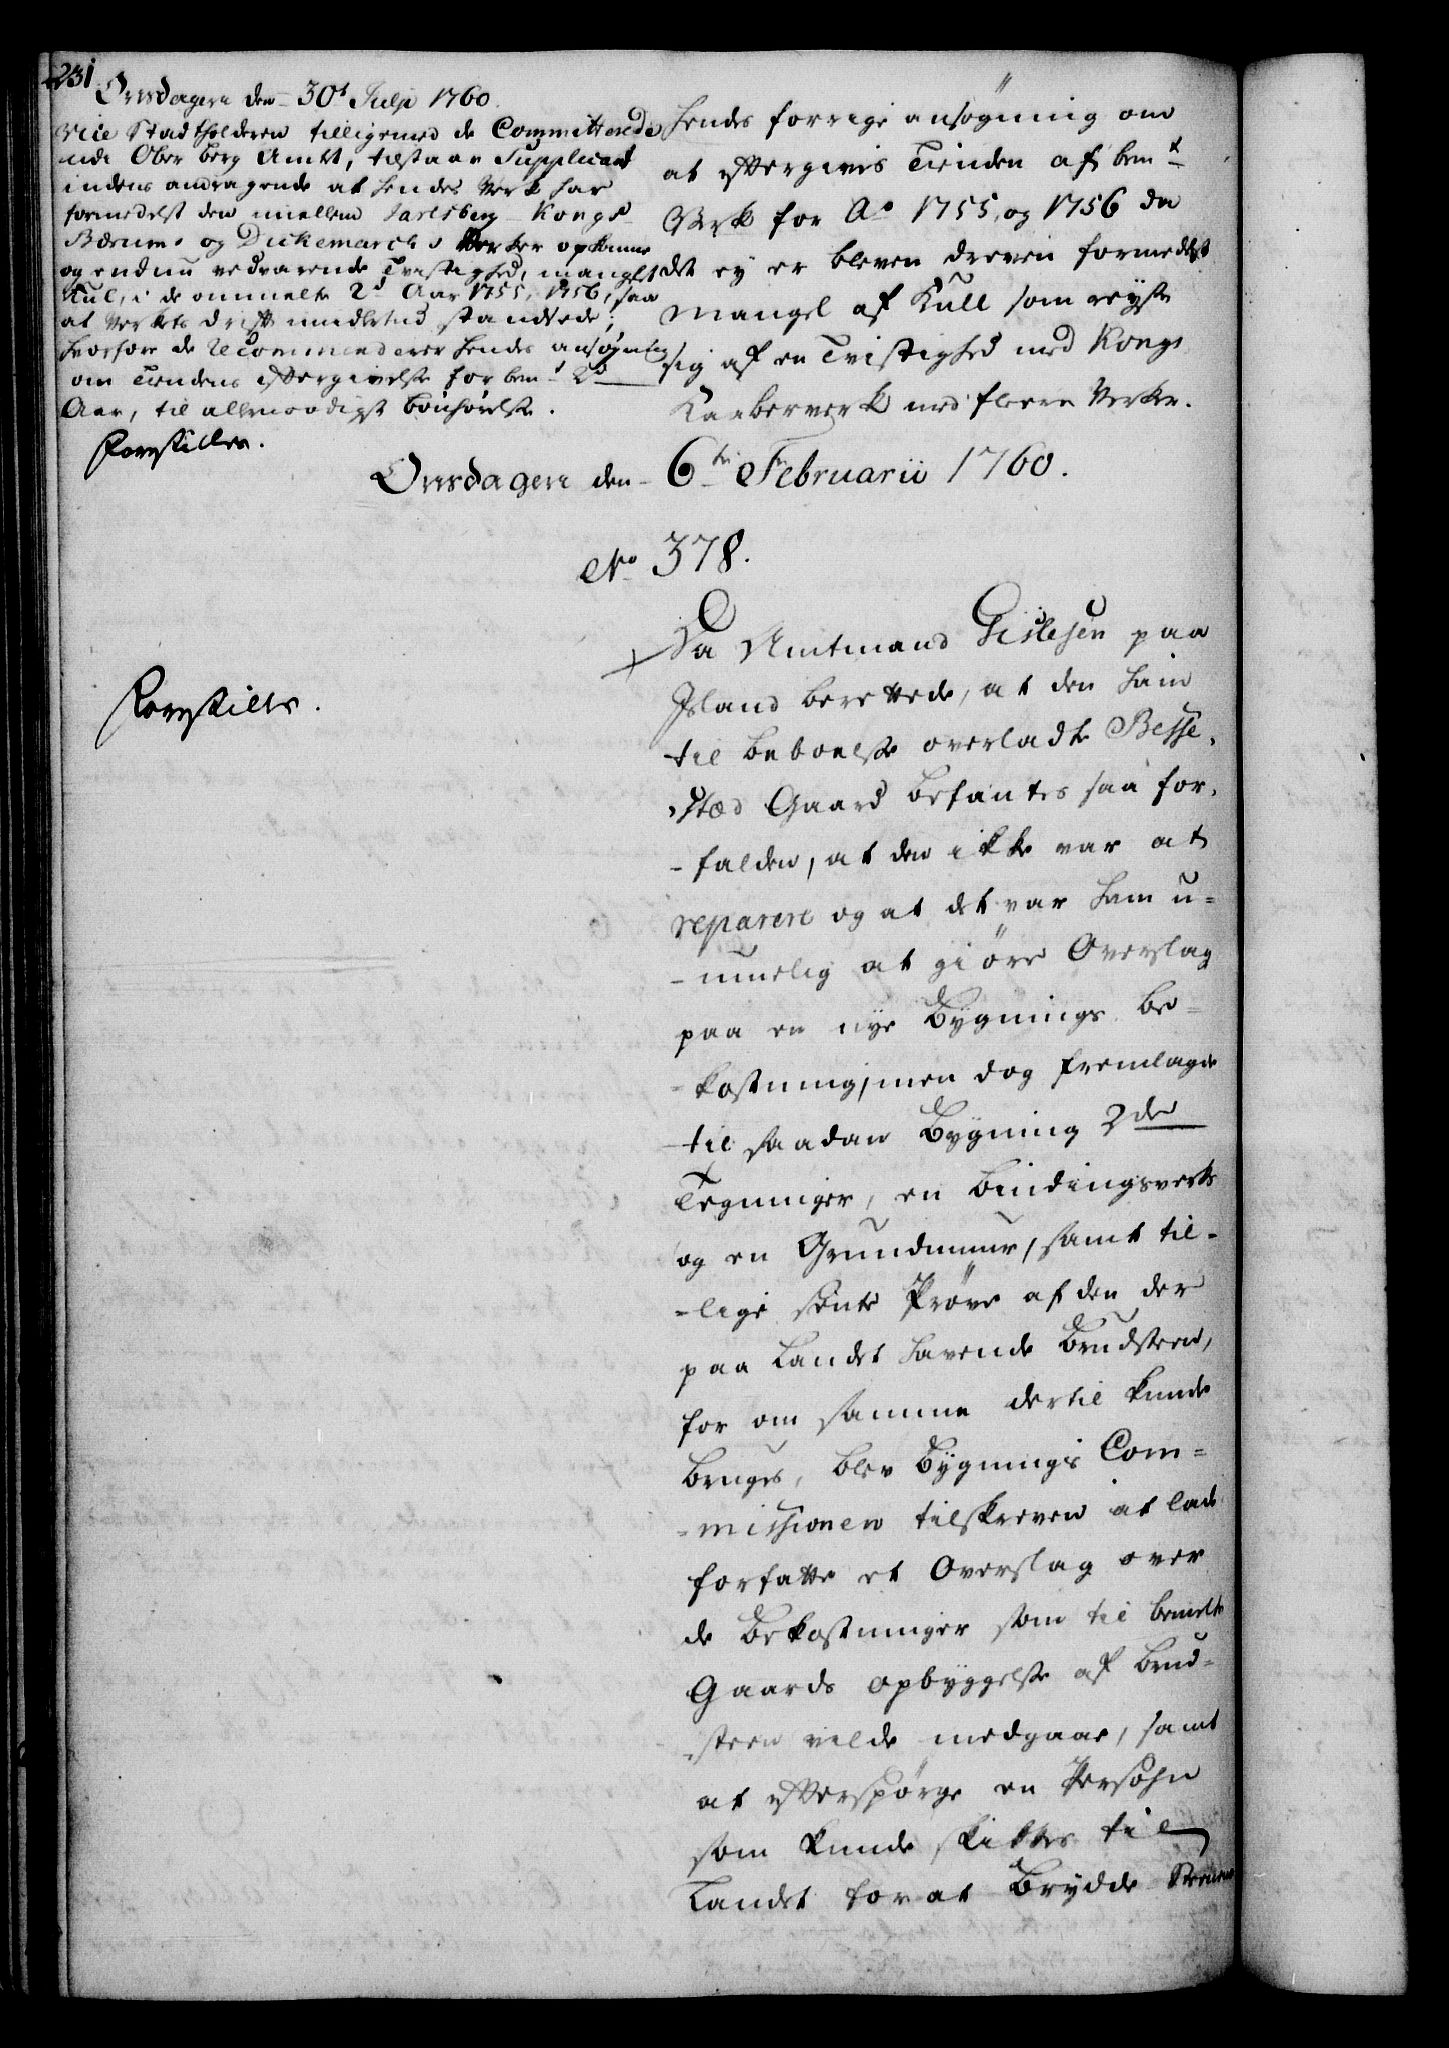 231
Onsdagen den 30t Julp 1760.
Vice Stadtholderen tilligemed de Committerede
udi Ober Berg Amtet, tilstaar Supplicant
indens andragende at hendes Verk har
formedelst den imellem Jarlsberg Kongs
Bærums og Dickemarchs Verker opkomne
og endnu vedvarende Tvistighed, manglet
Kul, i de ommelte 2d Aar 1755, 1756, saa
at Verkets drift imidlertid standsede;
hvorfore de recommenderer hendes ansøgning
om Tiendens eftergivelse for bemt 2de
Aar, til allernaadigst bönhörelse.
Forestilles.
hendes forrige ansøgning om
at eftergives Tienden af bemt
Verk for Ao 1755, og 1756 da
det ey er bleven dreven formedelst
Mangel af Kull som reyste
sig af en Tvistighed med Kongs
Kaaberverk med fleere Verker.
Onsdagen den 6te Februarii 1760.
No 378.
Forestilles.
Da Amtmand Gislesen paa
Jsland berettede, at den ham
til beboelse overladte Besse-
stæd Gaard befantes saa for-
-falden, at den ikke var at
reparere og at det var ham u-
-muelig at giöre Overslag
paa en nye Bygnings be-
-kostning, men dog fremlagde
til saadan Bygning 2de
Tegninger, en bindingsverks
og en Grundmuur, samt til-
-lige sendte Pröve af den der
paa Landet havende Brudsteen,
for om samme dertil kunde
bruges, blev Bygnings Com-
-missionen tilskreven at lade
forfatte et Overslag over
de Bekostninger som til bemelte
Gaards opbyggelse af brud-
steen vilde medgaae, samt
at efterspörge en Persohn
som kunde skikkes til
Landet for at Brydde Steenen